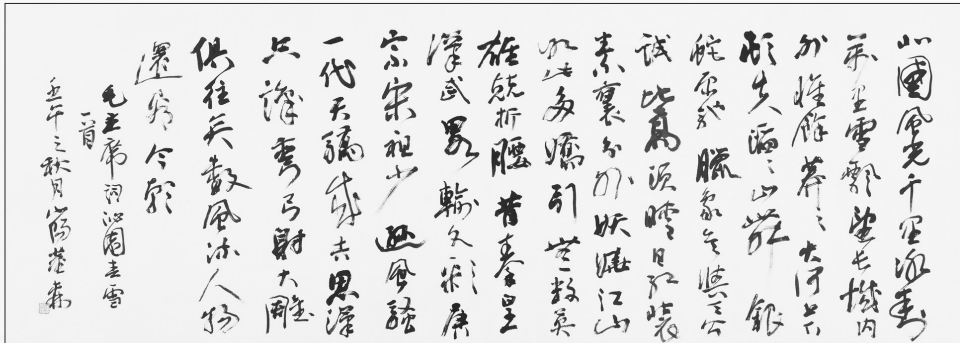 北國風光千里冰封
萬里雪飄望長城内
外惟餘莽〻大河上下
頓失滔〻山舞銀
蛇原馳臘象欲與天公
試比高須晴日紅裝
素裹分外妖嬈江山
如此多嬌引無數英
雄競折腰昔秦皇
漢武略輸文彩唐
宗宋祖少遜風騷
一代天驕成吉思漢
只識彎弓射大雕
俱往矣數風流人物
還看今朝
毛主席詞沁園春雪
一首
壬午之秋月